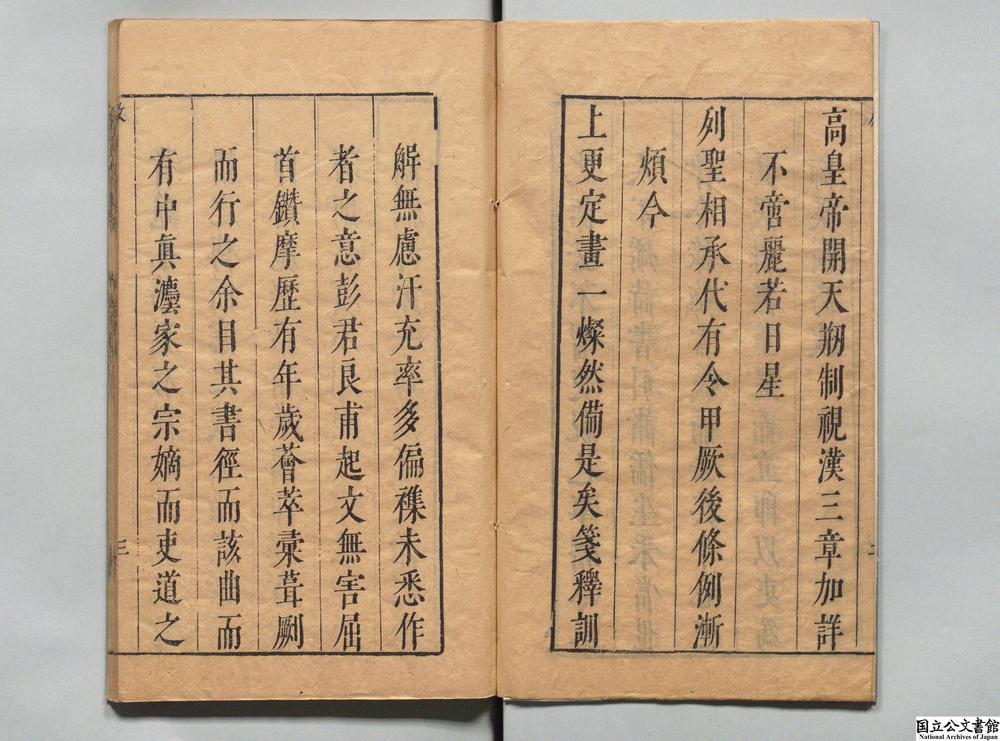 高皇帝開天剏制視漢三章加詳
不啻麗若日星
列聖相承代有令甲厥後條例漸
煩今
上更定畫一燦然備是矣箋釋訓
解無慮汗充率多偏襍未悉作
者之意彭君良甫起文無害屈
首鑽摩歷有年歲薈萃彙葺劂
而行之余目其書徑而該曲而
有中眞灋家之宗嫡而吏道之
三
国立公文書館
National Archives of Japan